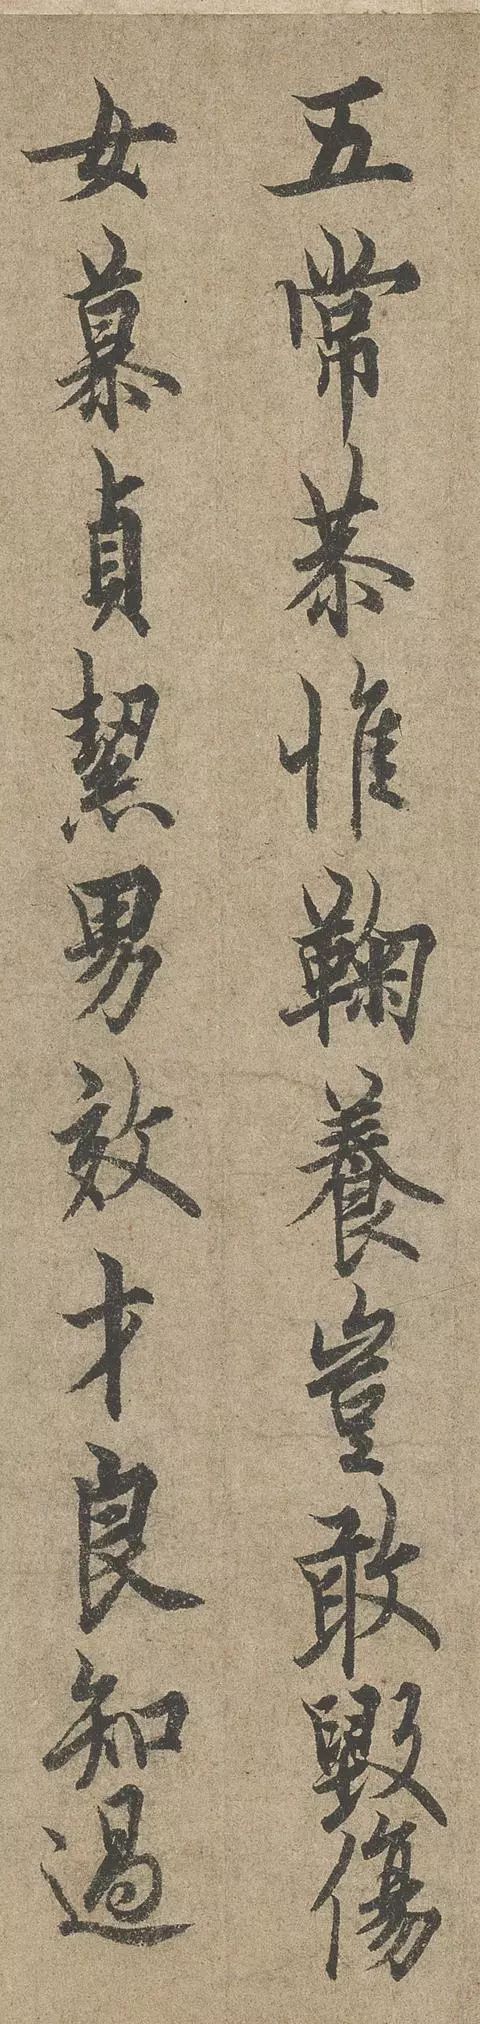 五常恭惟鞠養豈敢毀傷
女慕貞絜男效才良知過